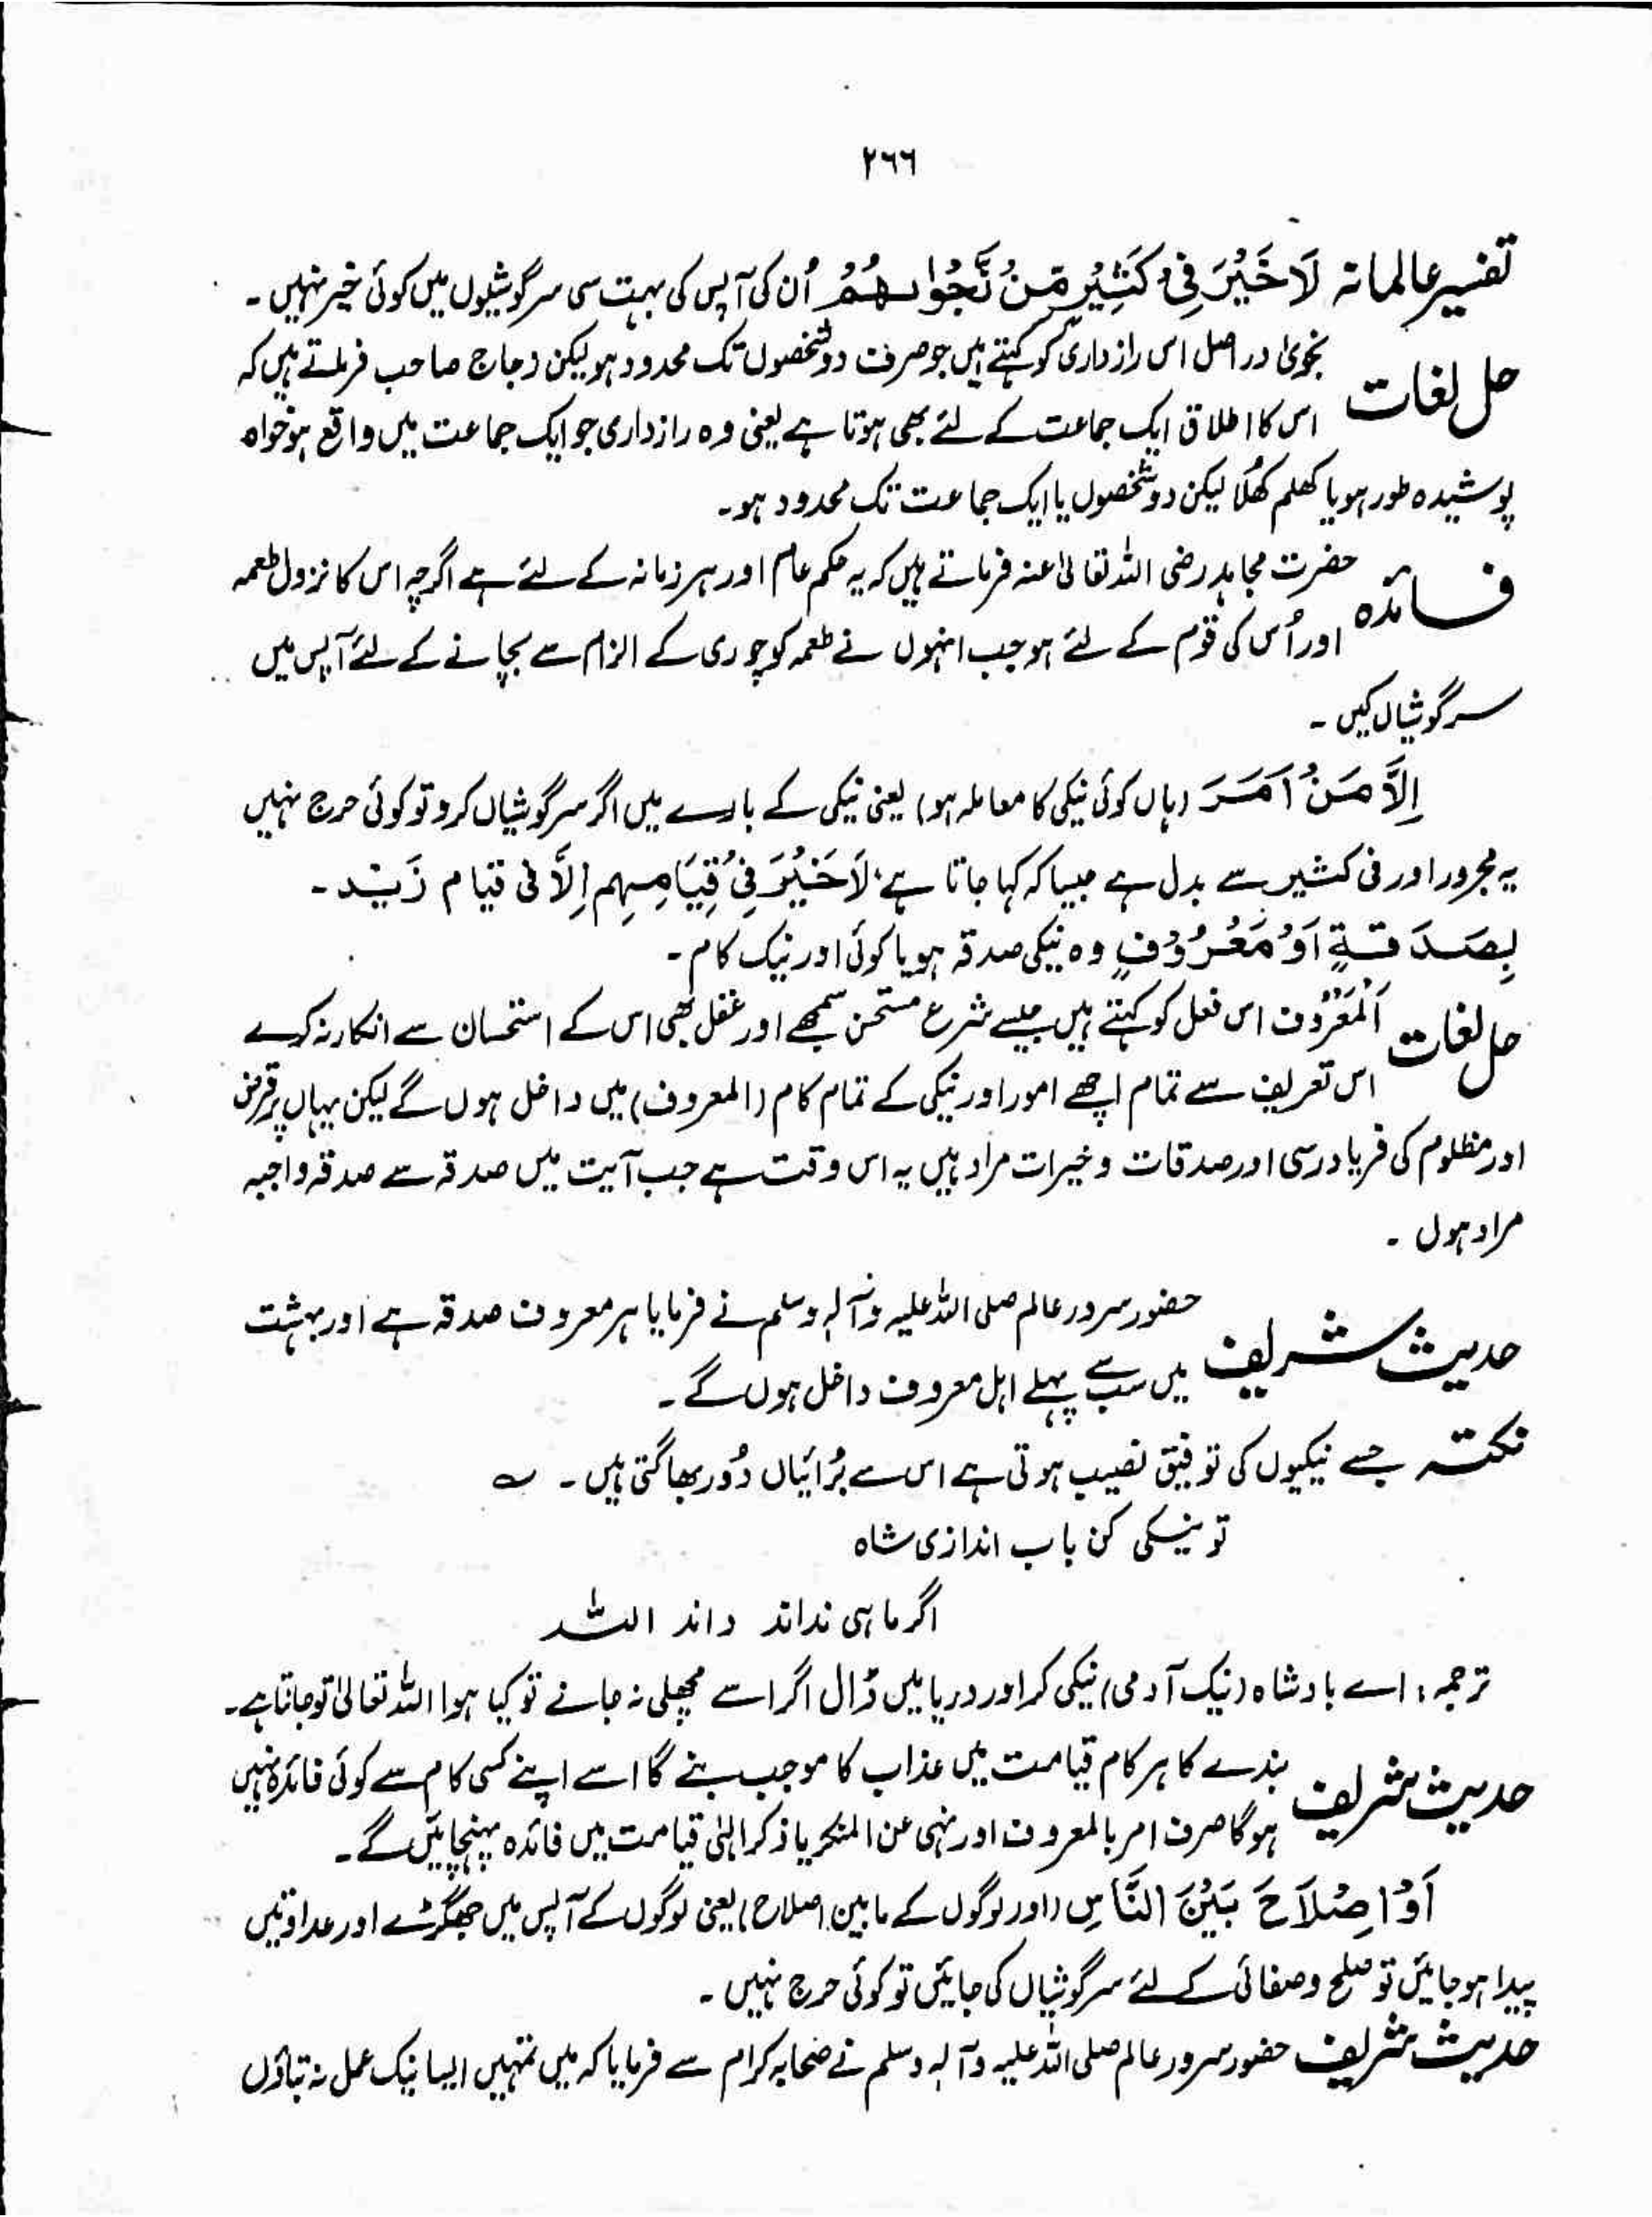 ۲۶۶
تفسیر عالمانہ لَا خَیْرَ فِیْ کَثِیْرٍ مِّنْ نَّجْوٰىهُمْ اُن کی آپس کی بہت سی سرگوشیوں میں کوئی خیر نہیں ۔
حل لغات نجویٰ دراصل اس رازداری کو کہتے ہیں جو صرف دو شخصوں تک محدود ہو لیکن زجاج صاحب فرماتے ہیں کہ
اس کا اطلاق ایک جماعت کے لئے بھی ہوتا ہے یعنی وہ رازداری جو ایک جماعت میں واقع ہو خواہ
پوشیدہ طور ہو یا کھلم کھُلا لیکن دو شخصوں یا ایک جماعت تک محدود ہو۔
فائدہ حضرت مجاہد رضی اللہ تعالیٰ عنہ فرماتے ہیں کہ یہ حکم عام اور ہر زمانہ کے لئے ہے اگرچہ اس کا نزول طعمہ
اور اُس کی قوم کے لئے ہو جب انہوں نے طعمہ کو چوری کے الزام سے بچانے کے لئے آپس میں
سرگوشیاں کیں ۔
اِلَّا مَنْ اَمَرَ (ہاں کوئی نیکی کا معاملہ ہو) یعنی نیکی کے بارے میں اگر سرگوشیاں کرو تو کوئی حرج نہیں
یہ مجرور اور فی کثیر سے بدل ہے جیسا کہ کہا جاتا ہے، لَا خَیْرَ فِیْ قِیَامِهِم اِلَّا فی قیام زَیْد ۔
بِصَدَقَةٍ اَوْ مَعْرُوْفٍ وہ نیکی صدقہ ہو یا کوئی اور نیک کام ۔
حل لغات اَلْمَعْرُوْف اس فعل کو کہتے ہیں جسے شرع مستحسن سمجھے اور عقل بھی اس کے استحسان سے انکار نہ کرے
اس تعریف سے تمام اچھے امور اور نیکی کے تمام کام (المعروف) میں داخل ہوں گے لیکن یہاں پر قرض
اور مظلوم کی فریاد رسی اور صدقات و خیرات مراد ہیں یہ اس وقت ہے جب آیت میں صدقہ سے صدقہ واجبہ
مراد ہوں ۔
حدیث شریف حضور سرور عالم صلی اللہ علیہ وآلہ وسلم نے فرمایا ہر معروف صدقہ ہے اور بہشت
میں سب سے پہلے اہل معروف داخل ہوں گے ۔
نکتہ جسے نیکیوں کی توفیق نصیب ہوتی ہے اس سے بُرائیاں دُور بھاگتی ہیں ۔ ؎
تو نیکی کن باب اندازی شاہ
اگر ماہی نداند داند اللہ
ترجمہ : اے بادشاہ (نیک آدمی) نیکی کر اور دریا میں ڈال اگر اسے مچھلی نہ جانے تو کیا ہوا اللہ تعالیٰ تو جانتا ہے۔
حدیث شریف بندے کا ہر کام قیامت میں عذاب کا موجب بنے گا اسے اپنے کسی کام سے کوئی فائدہ نہیں
ہوگا صرف امر بالمعروف اور نہی عن المنکر یا ذکر الٰہی قیامت میں فائدہ پہنچائیں گے ۔
اَوْ اِصْلَاحٍ بَیْنَ النَّاسِ (اور لوگوں کے مابین اصلاح) یعنی لوگوں کے آپس میں جھگڑے اور عداوتیں
پیدا ہو جائیں تو صلح و صفائی کے لئے سرگوشیاں کی جائیں تو کوئی حرج نہیں ۔
حدیث شریف حضور سرور عالم صلی اللہ علیہ وآلہ وسلم نے صحابہ کرام سے فرمایا کہ میں تمہیں ایسا نیک عمل نہ بتاؤں